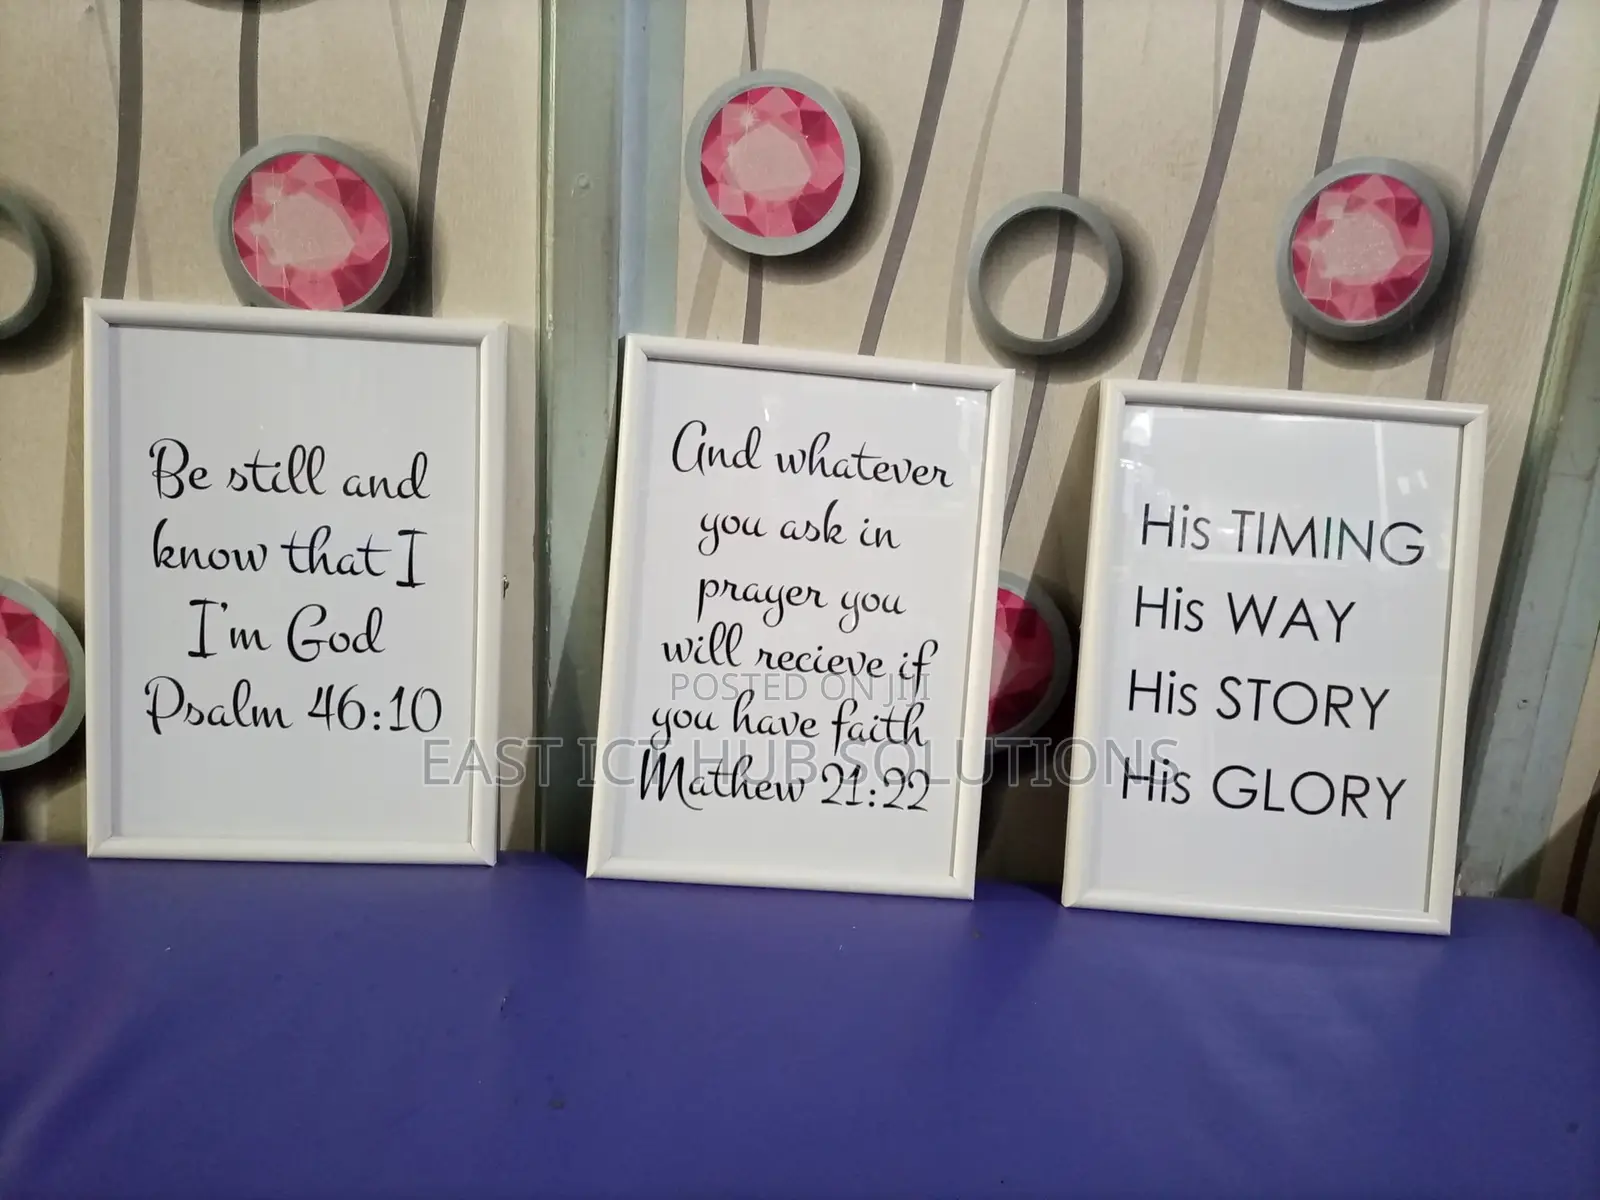 Be still and
know that I
I'm God
Psalm 46:10
And whatever
you ask in
prayer you
will recieve if
you have faith
Mathew 21:22
His TIMING
His WAY
His STORY
His GLORY
POSTED ON JIJI
EAST ICT HUB SOLUTIONS